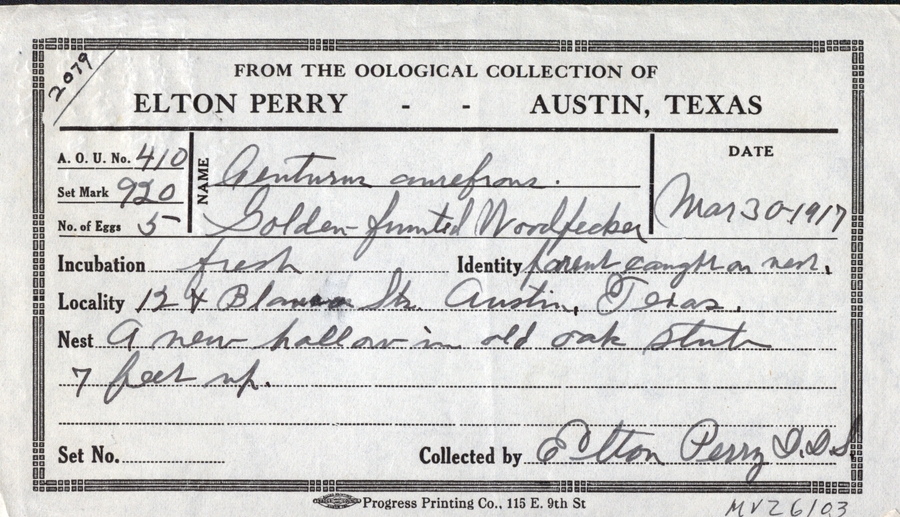 2079
FROM THE OOLOGICAL COLLECTION OF
ELTON PERRY - - AUSTIN, TEXAS
A. O. U. No. 410
Set Mark 920
No. of Eggs 5
NAME Centurus aurefrons.
Golden-fronted Woodpecker
DATE
Mar 30-1917
Incubation fresh Identity parent caught on nest.
Locality 12 & Blanco Sts. Austin, Texas.
Nest A new hallow in old oak stub
7 feet up.
Set No. Collected by Elton Perry D.D.S.
Progress Printing Co., 115 E. 9th St
MVZ6103